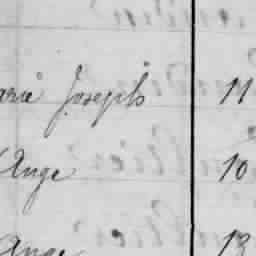 arie Joseph 11
Ange 10
Ange 13